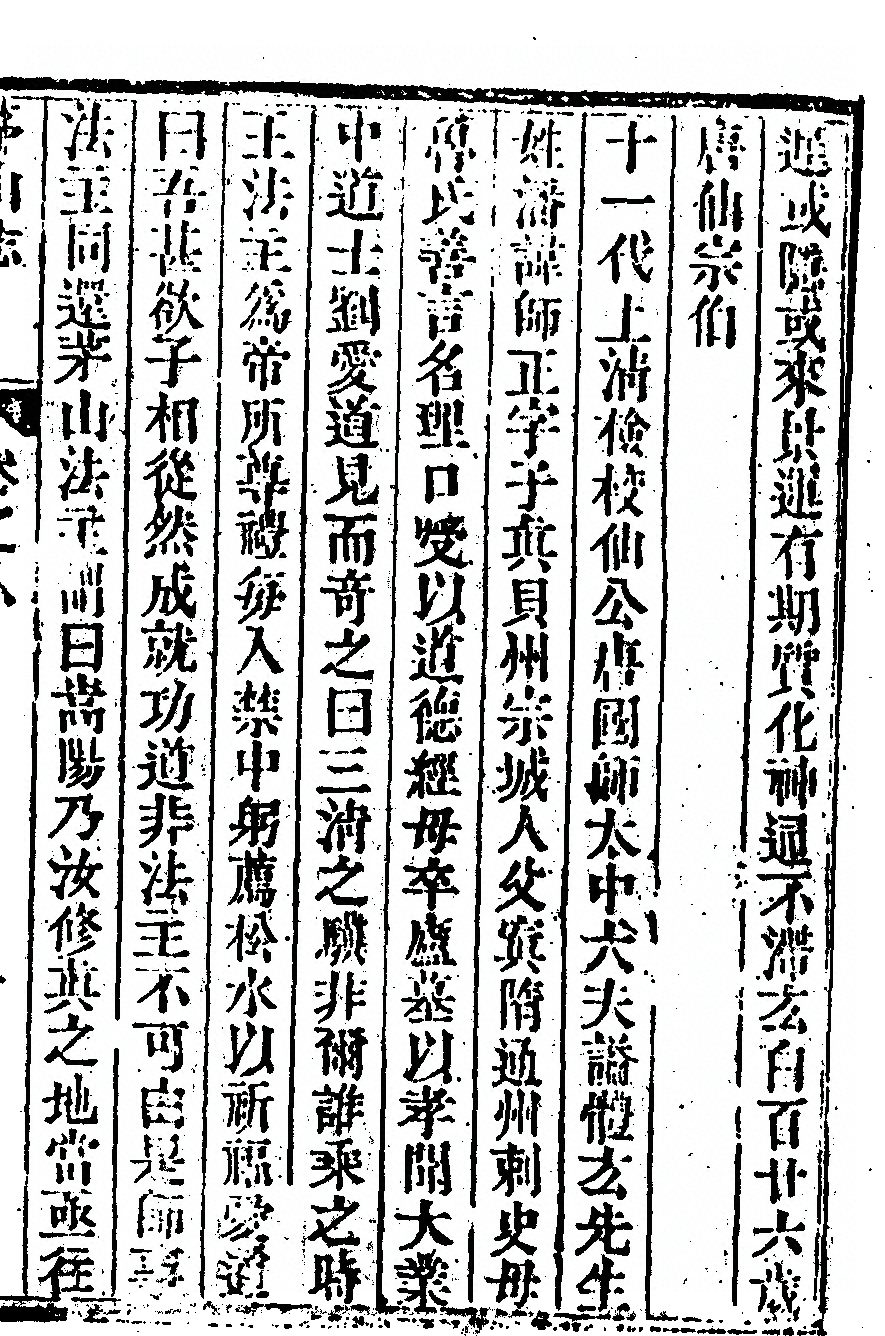 遲或隱或來具運有期質化神迴不滯玄白百廿六歲
唐仙宗伯
十一代上清檢校仙公唐國師太中大夫謚體玄先生
姓潘諱師正字子真貝州宗城人父寘隋通州刺史母
魯氏善言名理口受以道德經母卒廬墓以孝聞大業
中道士劉愛道見而奇之曰三清之驥非爾誰乘之時
王法主為帝所尊禮每入禁中躬薦松水以祈福愛道
曰吾甚欲子相從然成就功道非法主不可由是師事
法主同還茅山法主謂曰嵩陽乃汝修真之地當亟往
茅山志 卷之